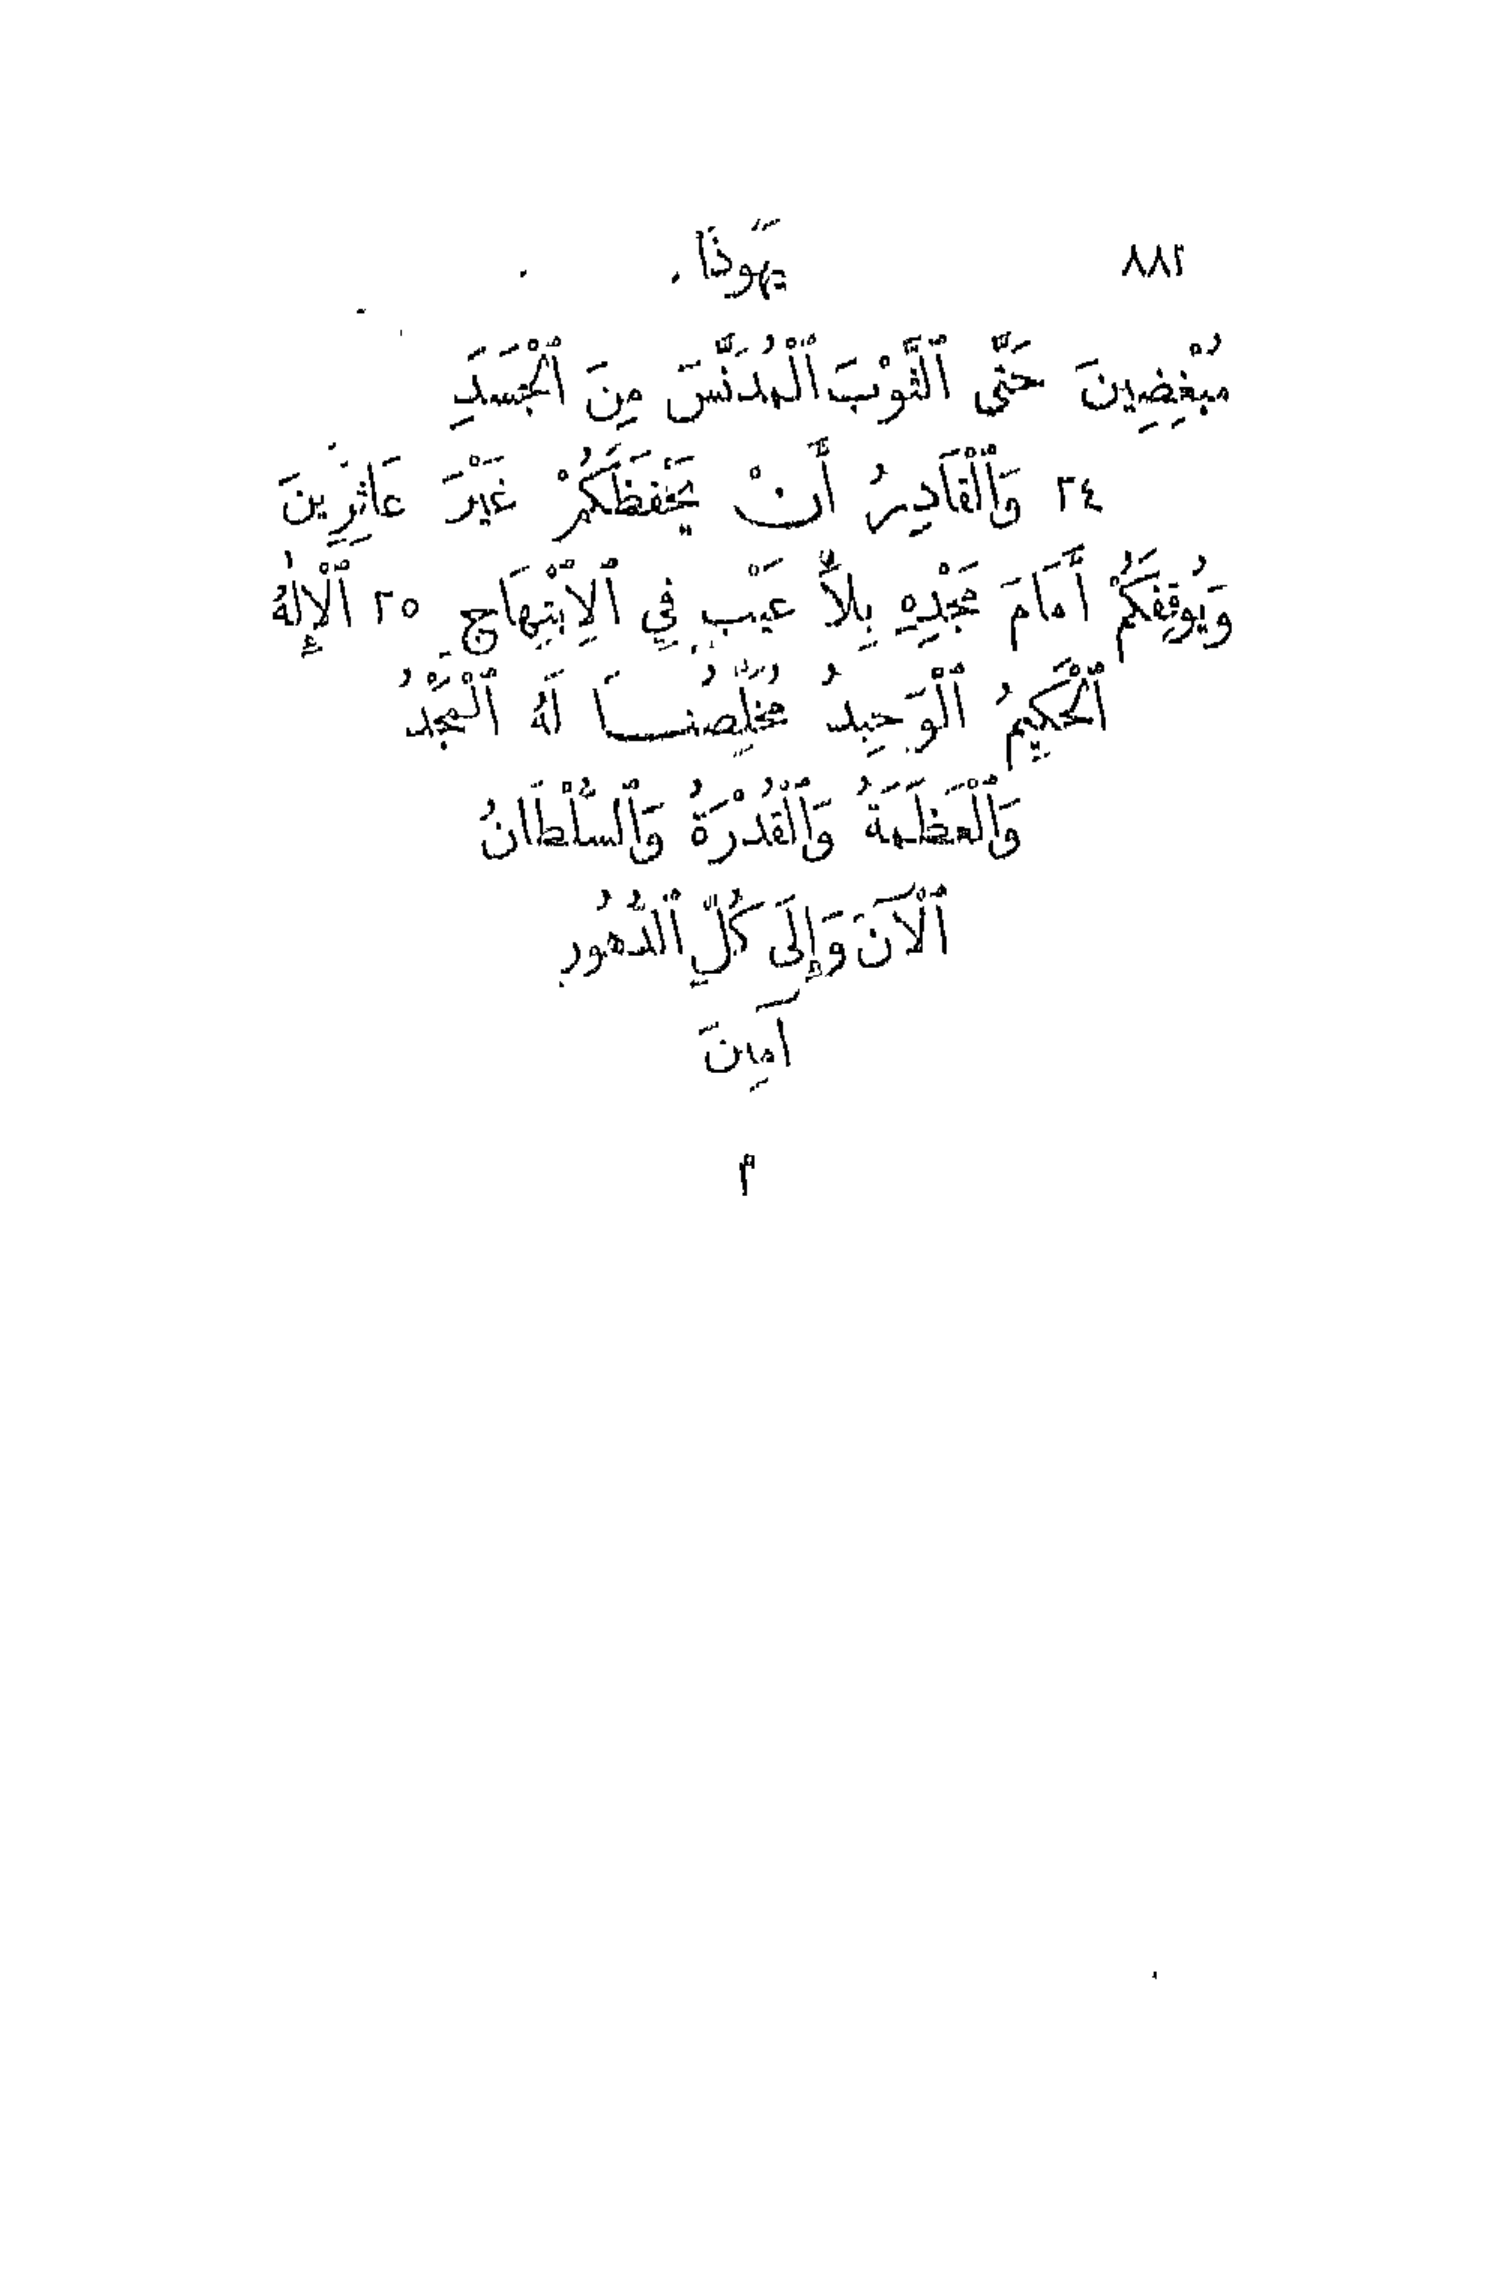 ٨٨٢ يَهُوذَا
مُبْغِضِينَ حَتَّى ٱلثَّوْبَ ٱلْمُدَنَّسَ مِنَ ٱلْجَسَدِ
٢٤ وَٱلْقَادِرُ أَنْ يَحْفَظَكُمْ غَيْرَ عَاثِرِينَ
وَيُوقِفَكُمْ أَمَامَ مَجْدِهِ بِلاَ عَيْبٍ فِي ٱلِٱبْتِهَاجِ ٢٥ ٱلْإِلٰهُ
ٱلْحَكِيمُ ٱلْوَحِيدُ مُخَلِّصُنَا لَهُ ٱلْمَجْدُ
وَٱلْعَظَمَةُ وَٱلْقُدْرَةُ وَٱلسُّلْطَانُ
ٱلْآنَ وَإِلَى كُلِّ ٱلدُّهُورِ
آمِينَ